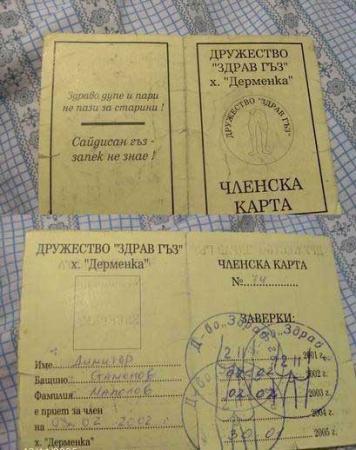 Здраво дупе и пари
не пази за старини !
Сайдисан гъз -
запек не знае !
ДРУЖЕСТВО
"ЗДРАВ ГЪЗ"
х. "Дерменка"
ДРУЖЕСТВО "ЗДРАВ ГЪЗ"
ЧЛЕНСКА
КАРТА
ДРУЖЕСТВО "ЗДРАВ ГЪЗ"
х. "Дерменка"
Име Димитър
Бащино
Фамилия
е приет за член
на 02 2002
х. "Дерменка"
ЧЛЕНСКА КАРТА
№ 74
ЗАВЕРКИ:
2001 г.
2002 г.
2003 г.
2004 г.
2005 г.